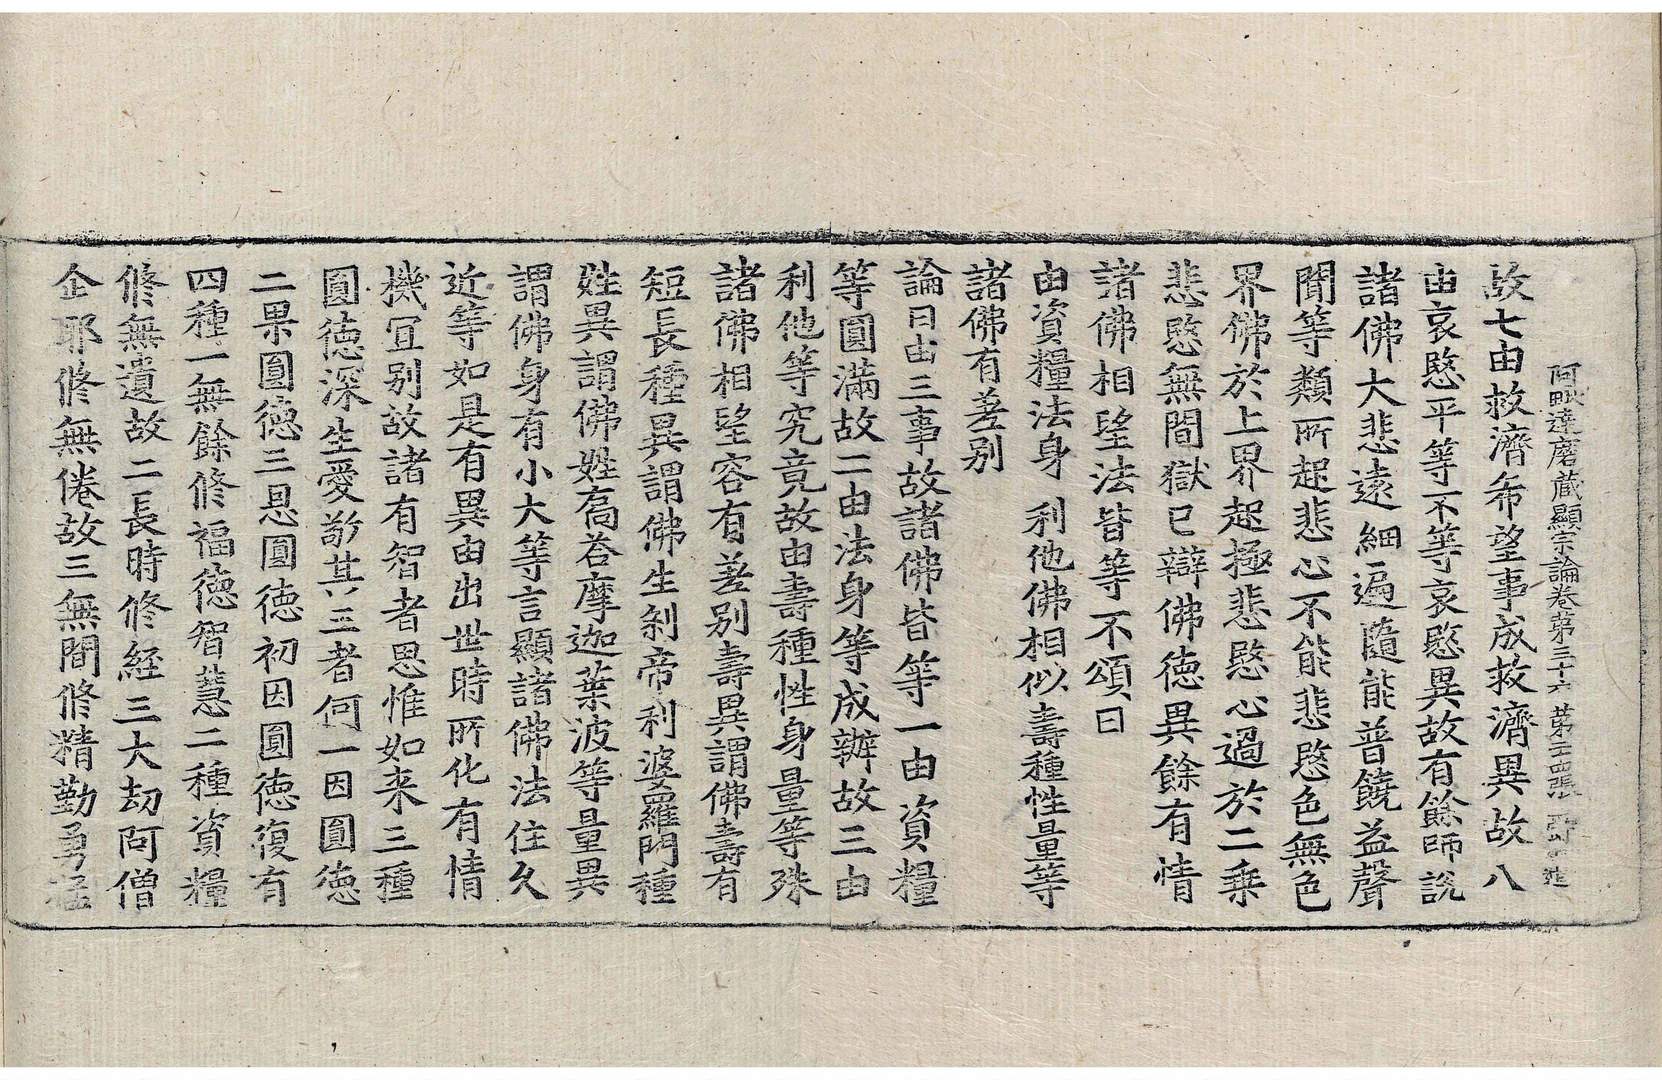 阿毗達磨藏顯宗論卷第三十六 第三張
故七由救濟希望事成救濟異故八
由哀愍平等不等哀愍異故有餘師說
諸佛大悲遠細遍隨能普饒益聲
聞等類所起悲心不能悲愍色無色
界佛於上界起極悲愍心過於二乘
悲愍無間獄已辯佛德異餘有情
諸佛相望法皆等不頌曰
由資糧法身 利他佛相似壽種性量等
諸佛有差別
論曰由三事故諸佛皆等一由資糧
等圓滿故二由法身等成辦故三由
利他等究竟故由壽種性身量等殊
諸佛相望容有差別壽異謂佛壽有
短長種異謂佛生剎帝利婆羅門種
姓異謂佛姓喬荅摩迦葉波等量異
謂佛身有小大等言顯諸佛法住久
近等如是有異由出世時所化有情
機宜別故諸有智者思惟如来三種
圓德深生愛敬其三者何一因圓德
二果圓德三恩圓德初因圓德復有
四種一無餘修福德智慧二種資糧
修無遺故二長時修経三大劫阿僧
企耶修無倦故三無間修精勤勇猛